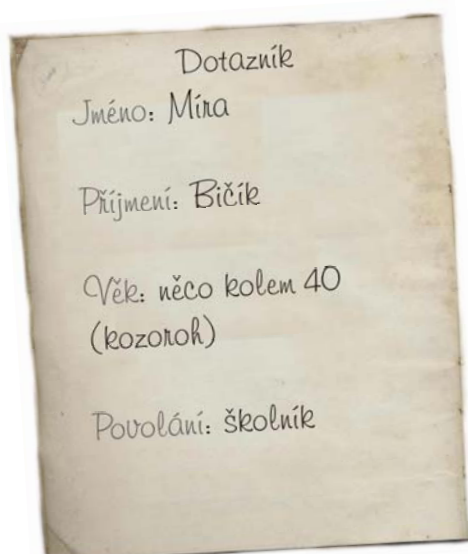 Dotazník
Jméno: Míra
Příjmení: Bičík
Věk: něco kolem 40
(kozoroh)
Povolání: školník